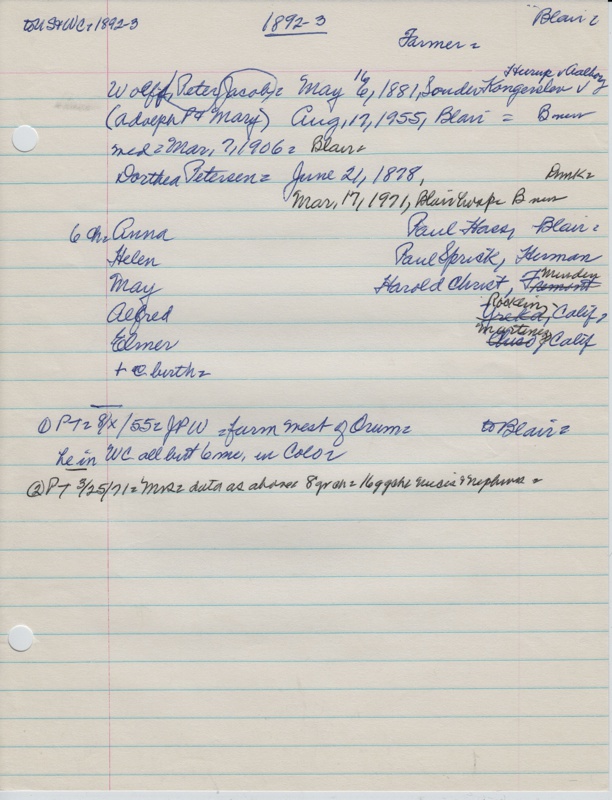 to US & WC + 1892-3 1892-3 Blair =
Farmer =
Hurup v Aalborg
Wolff, Peter Jacob = May 16, 1881, Sonder Kongerslev v
(Adolph P & Mary) Aug, 17, 1955, Blair = B new
med = Mar, 7, 1906 = Blair =
Dorthea Petersen = June 21, 1878, Dmk =
Mar, 17, 1971, Blair = B new
6 ch = Anna Paul Hass, Blair =
Helen Paul Sprick, Herman
May Harold Christ, Fremont Minden
Alfred Rocklin, Yreka, Calif =
Elmer Martinez, Calif
+ @ birth =
① PT = 8/x/55 = JPW = farm west of Orum = to Blair =
he in WC all but 6 mo, in Color
② PT 3/25/71 = Mrs = data as above 8 grch = 16 ggch =